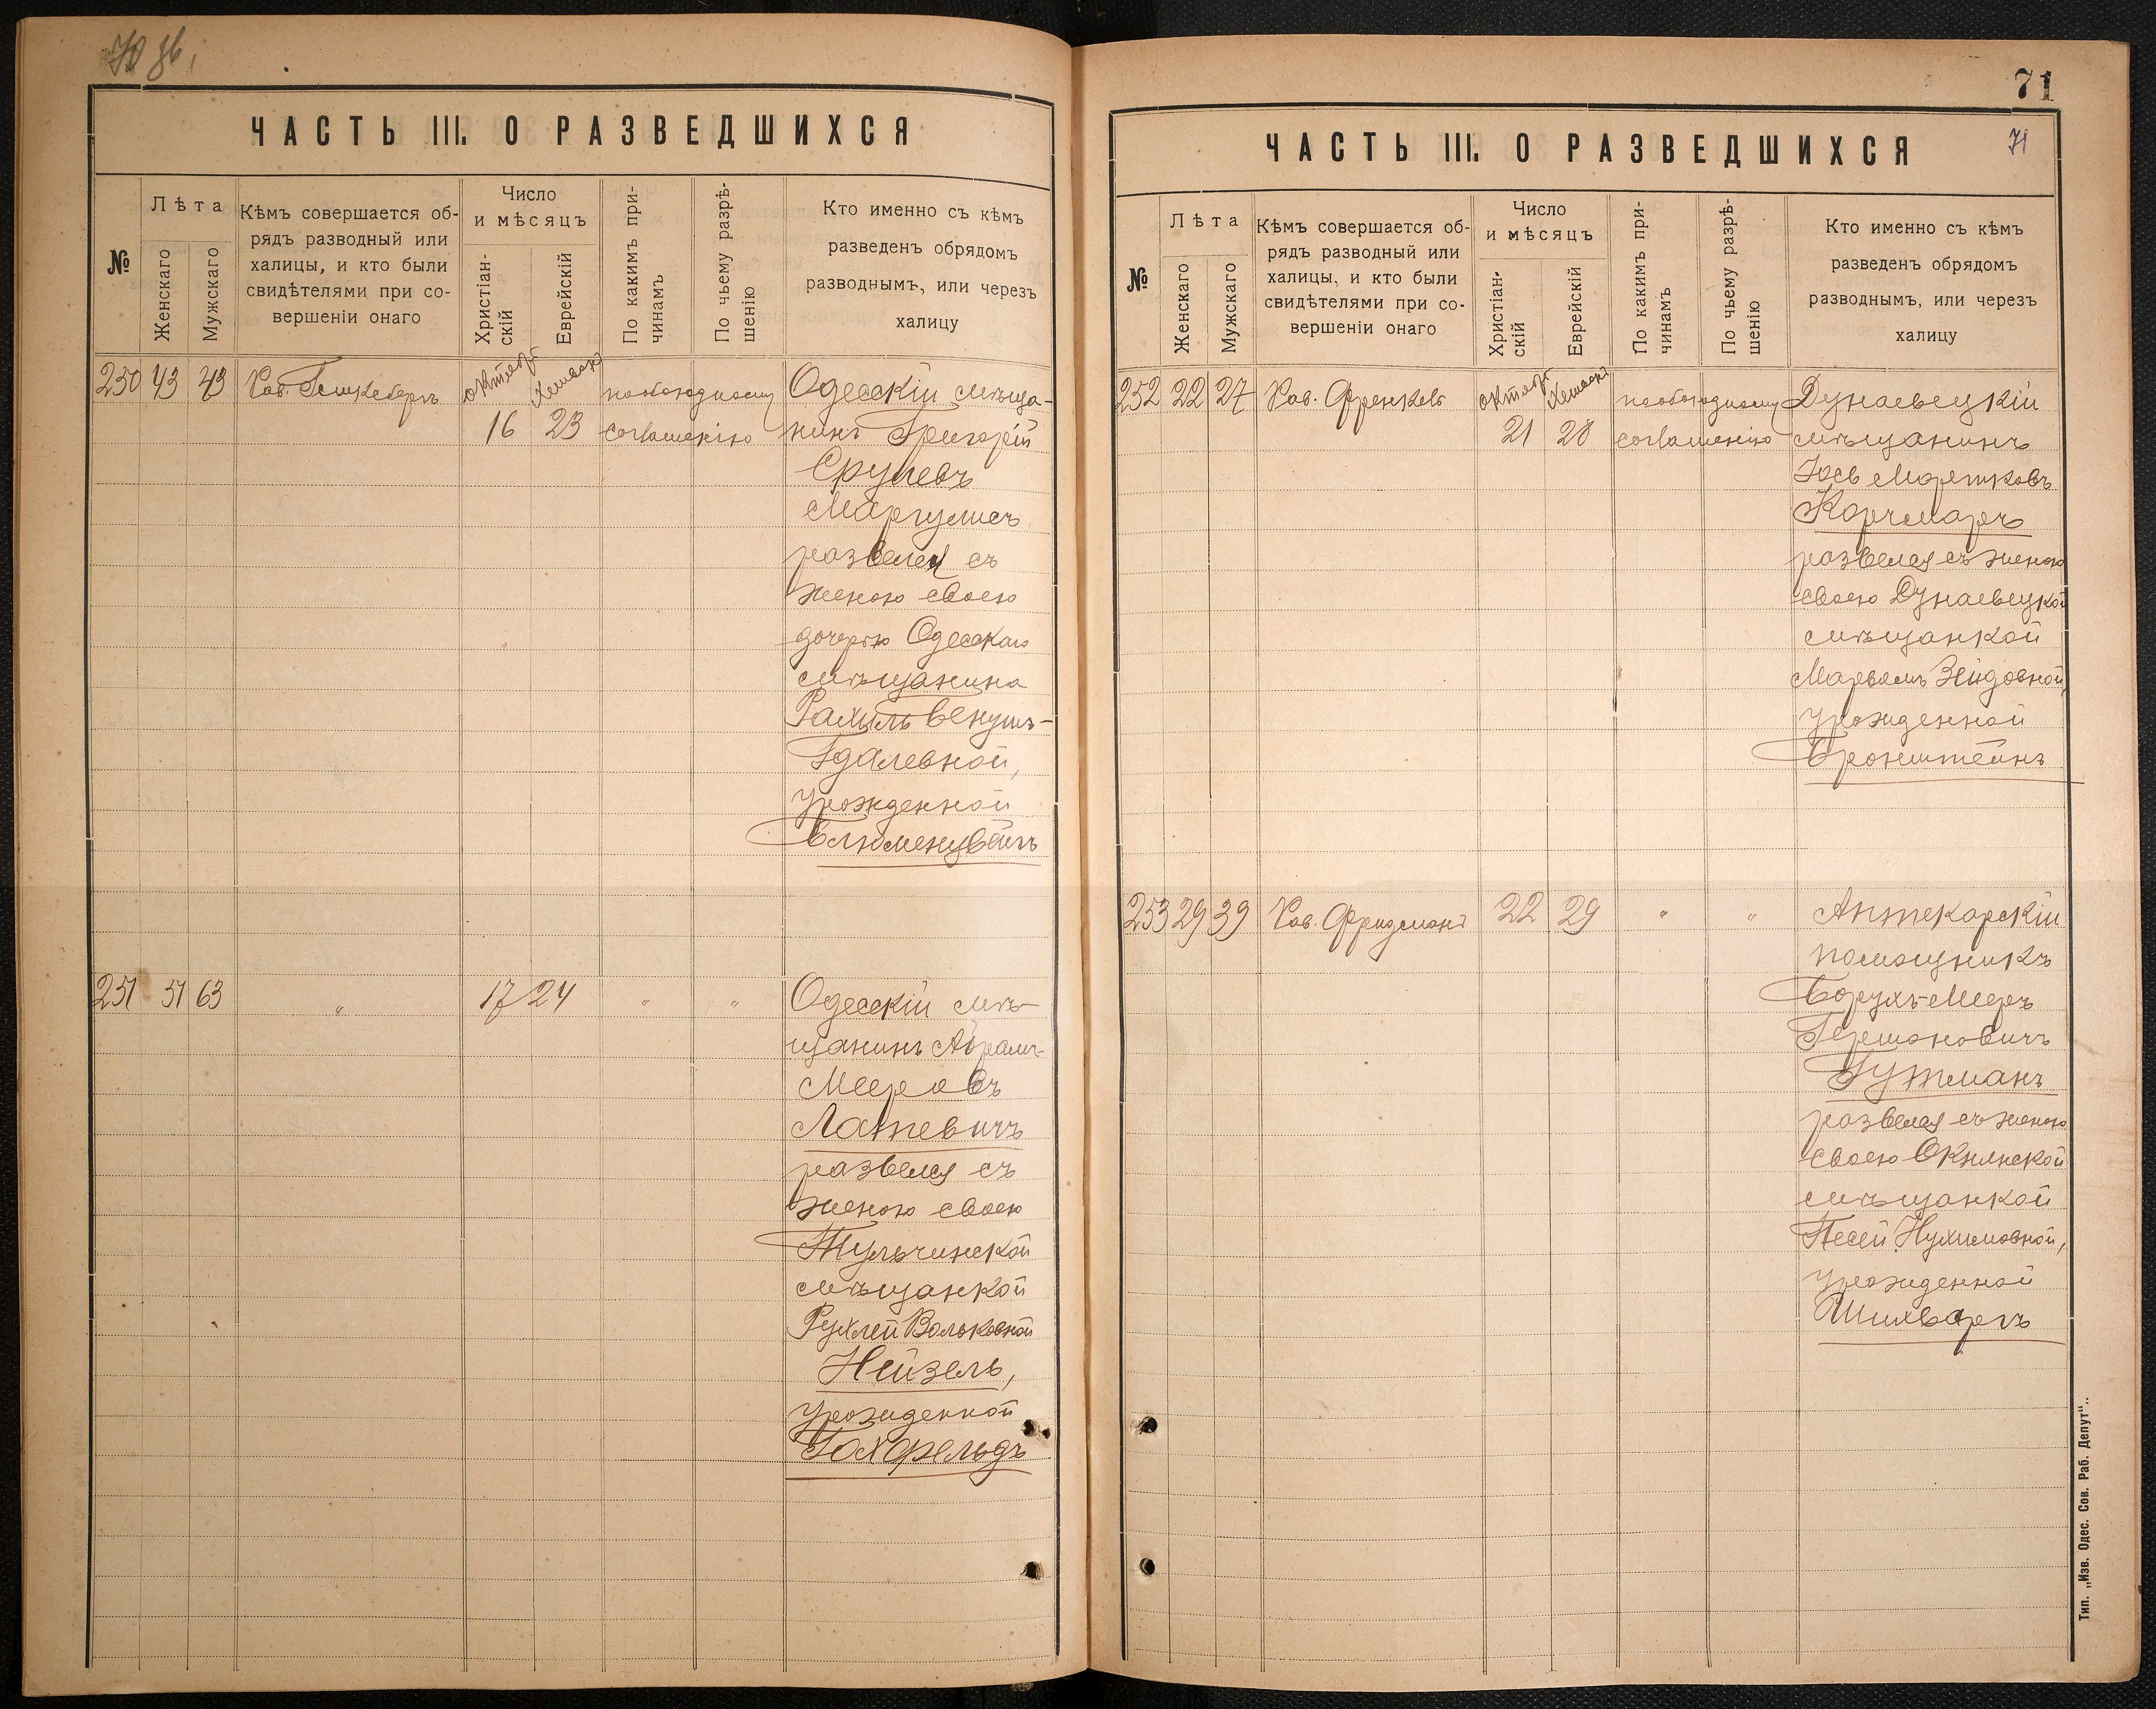 ЧАСТЬ III. О РАЗВЕДШИХСЯ
№
Лѣта
Женскаго
Мужскаго
Кѣмъ совершается об-
рядъ разводный или
халицы, и кто были
свидѣтелями при со-
вершеніи онаго
Число
и мѣсяцъ
Христіан-
скій
Еврейскій
По какимъ при-
чинамъ
По чьему разрѣ-
шенію
Кто именно съ кѣмъ
разведенъ обрядомъ
разводнымъ, или черезъ
халицу
250 43 43 Рав. октяб Хешвана пообоюдному Одесскій мѣща-
16 23 соглашенію нинъ Григорій
Срулевъ
Маргулисъ
развелся съ
женою своею
дочерью Одесскаго
мѣщанина
Рахиль Венушъ-
Гдалевной,
урожденной
251 51 63 " 17 24 " " Одесскій мѣ-
щанинъ Абрамъ-
Мееровъ
развелся съ
женою своею
Тульчинской
мѣщанкой
Рухлей Вольковной
Нейзель,
урожденной
Гохфельдъ
71
ЧАСТЬ III. О РАЗВЕДШИХСЯ
71
№
Лѣта
Женскаго
Мужскаго
Кѣмъ совершается об-
рядъ разводный или
халицы, и кто были
свидѣтелями при со-
вершеніи онаго
Число
и мѣсяцъ
Христіан-
скій
Еврейскій
По какимъ при-
чинамъ
По чьему разрѣ-
шенію
Кто именно съ кѣмъ
разведенъ обрядомъ
разводнымъ, или черезъ
халицу
252 22 27 Рав. Френкель октяб Хешвана пообоюдному Дунаевецкій
21 28 соглашенію мѣщанинъ
Іось Мортковъ
Корчмаръ
развелся съ женою
своею Дунаевецкой
мѣщанкой
Марьямъ Зейдовной,
урожденной
Бронштейнъ
253 29 39 Рав. Фридманъ 22 29 " " Аптекарскій
помощникъ
Борухъ-Мееръ
Гершоновичъ
Гутманъ
развелся съ женою
своею Окнянской
мѣщанкой
Песей Нухимовной,
урожденной
Шихваргъ
Тип. „Изв. Одес. Сов. Раб. Депут“..